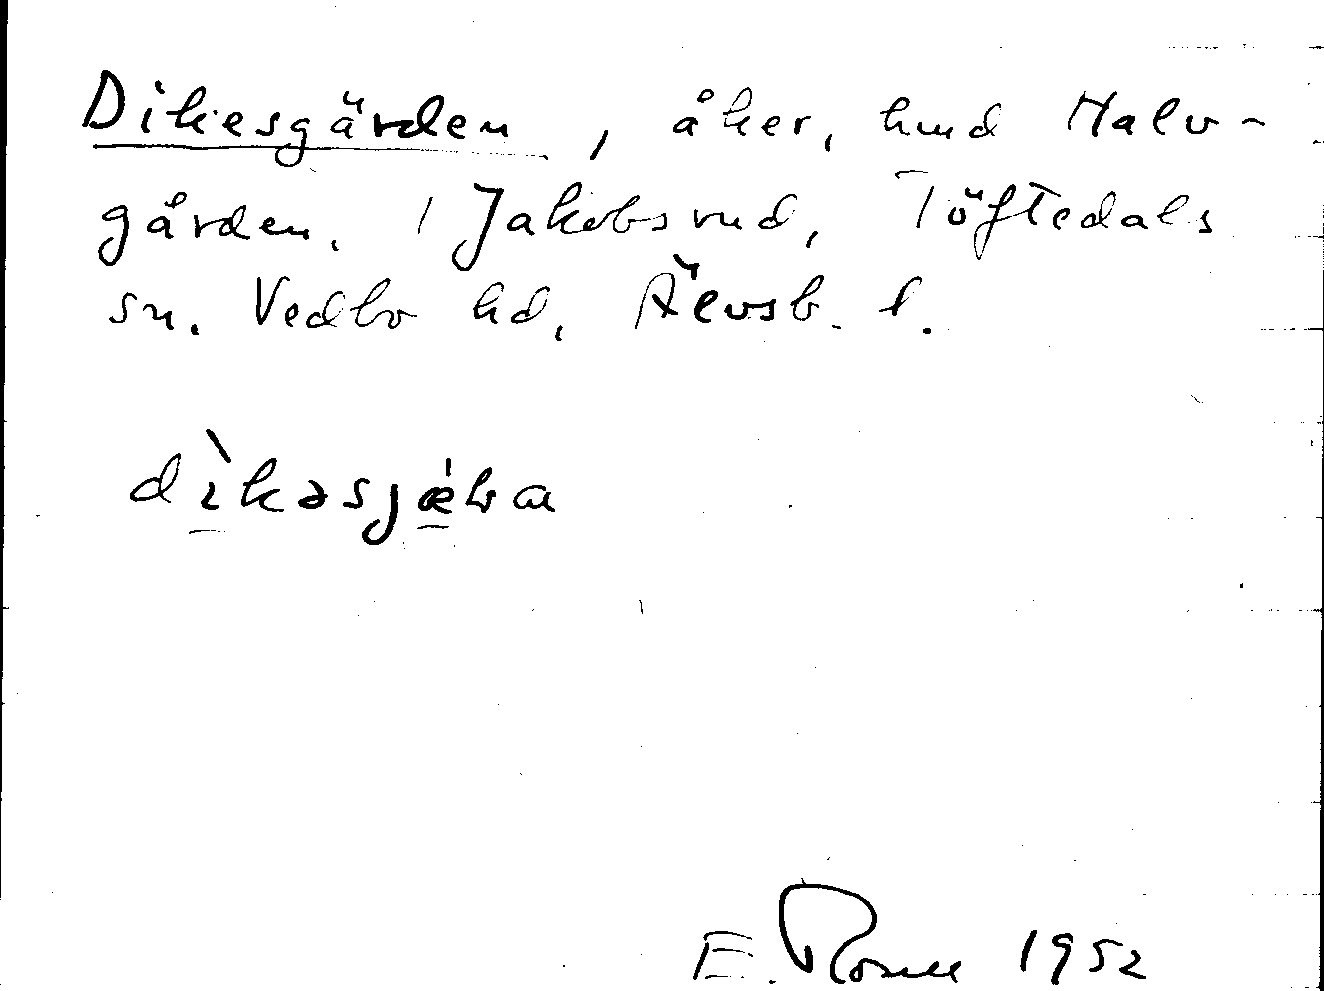 Dikesgärden, åker, hmd Halv-
gården. 1 Jakobsrud, Töftedals
sn. Vedbo hd, Älvsb. l.
dìkəsjæ̀ɽɑ
E. Rosell 1952